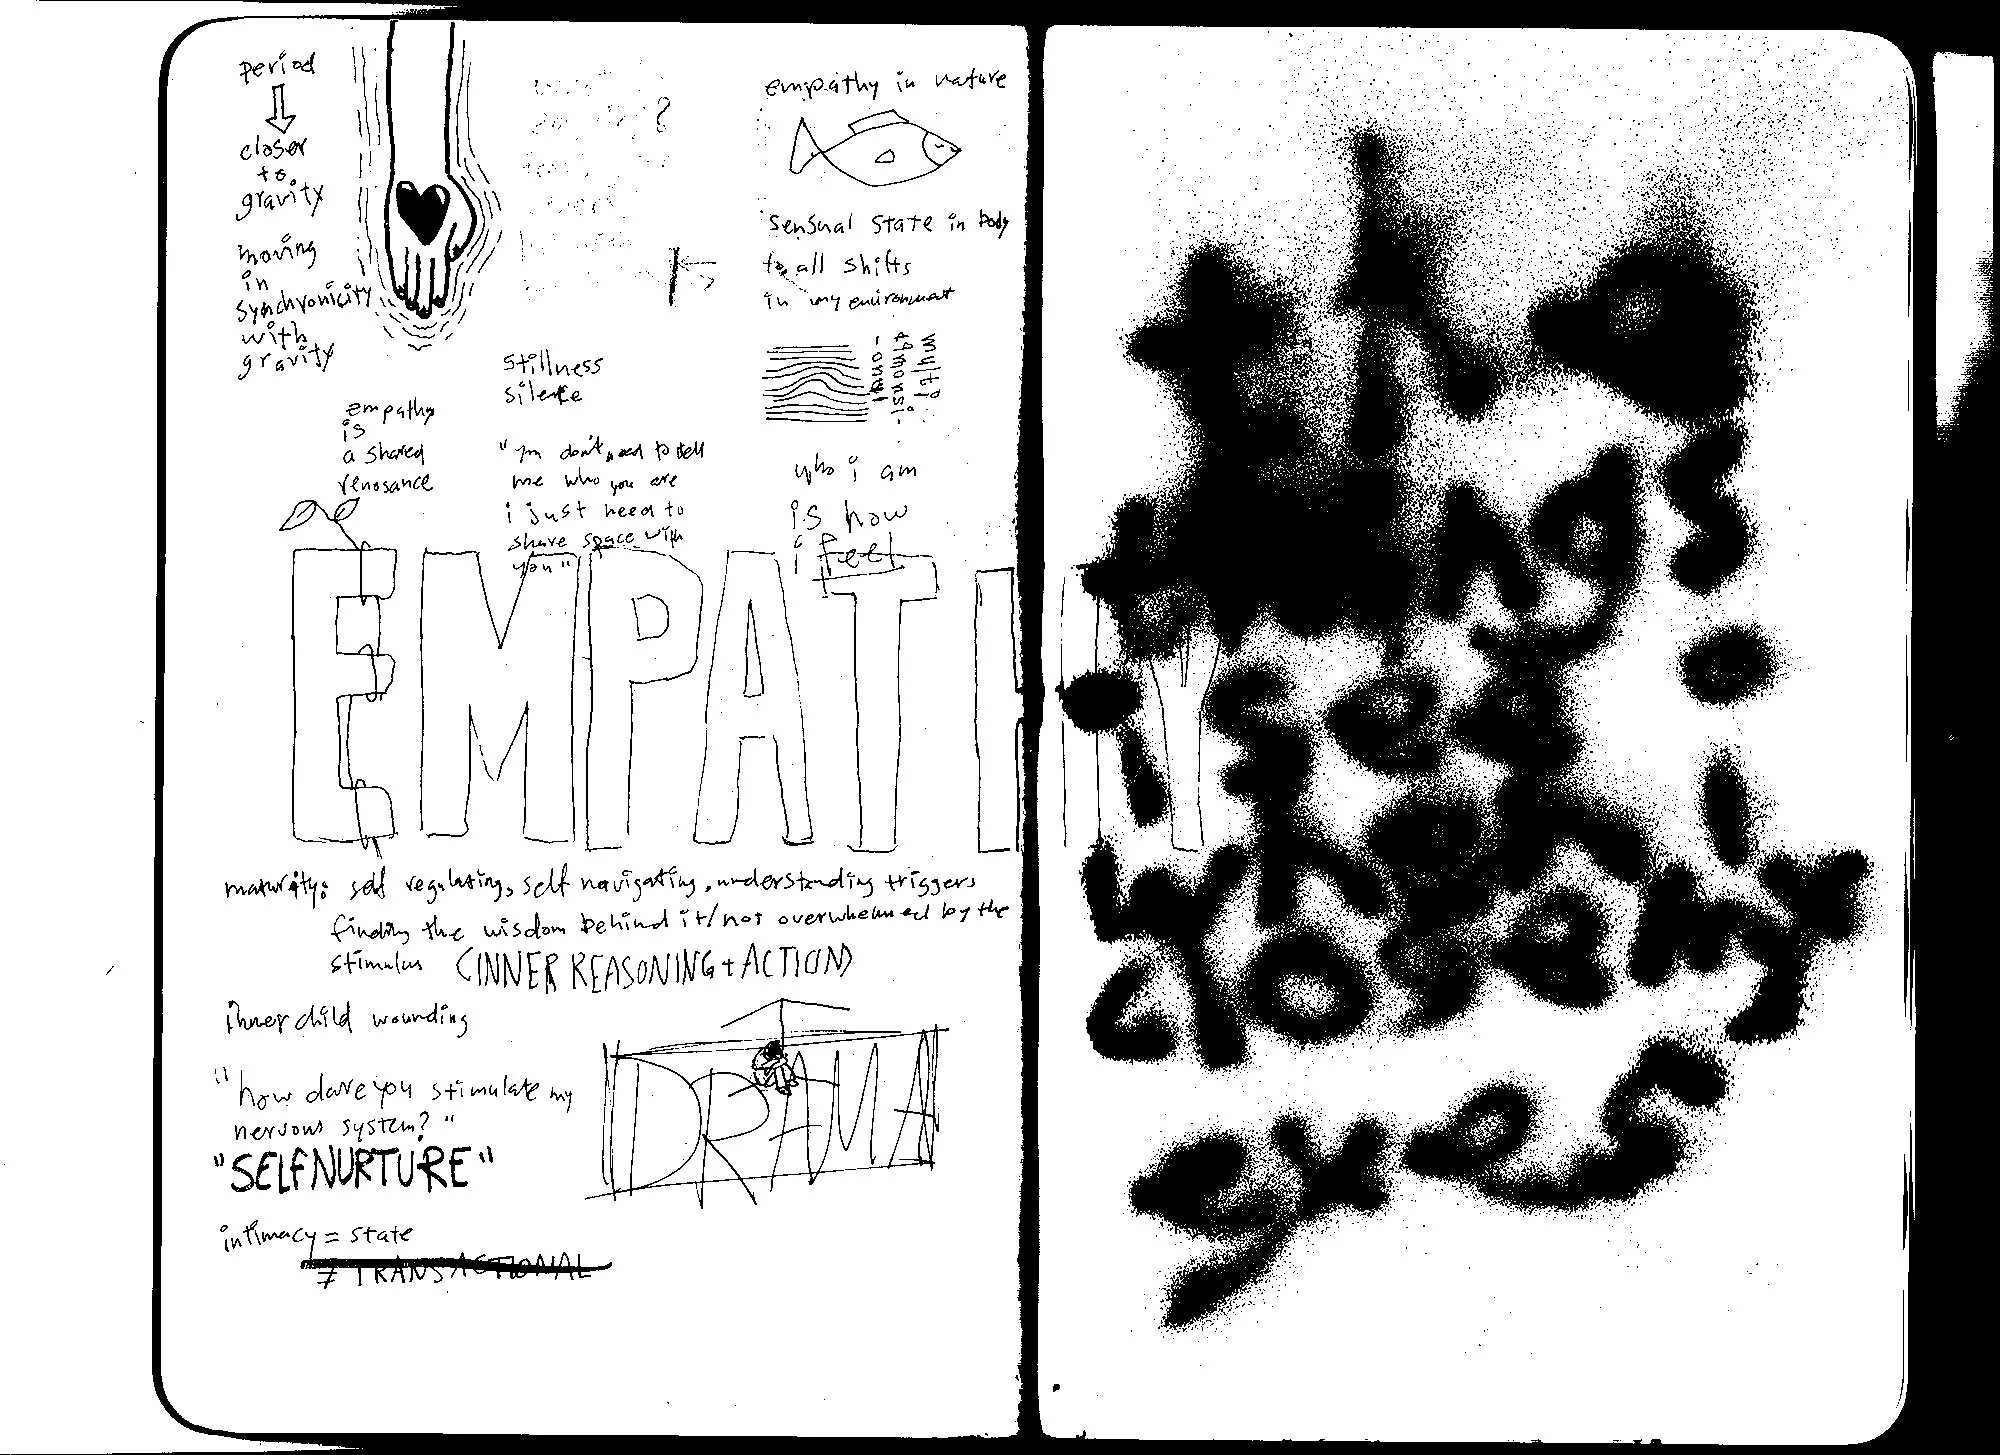 period
closer
to
gravity
moving
in
synchronicity
with
gravity
empathy
is
a shared
renosance
stillness
silence
"you don't need to tell
me who you are
i just need to
share space with
you"
empathy in nature
sensual state in body
to all shifts
in my environment
multi
dimensi-
-onal
who i am
is how
i feel
EMPATHY
maturity: self regulating, self navigating, understanding triggers
finding the wisdom behind it/not overwhelmed by the
stimulus (INNER REASONING + ACTION)
inner child wounding
"how dare you stimulate my
nervous system?"
"SELFNURTURE"
DRAMA
intimacy = state
≠ TRANSACTIONAL
the
things
i see
when i
close my
eyes